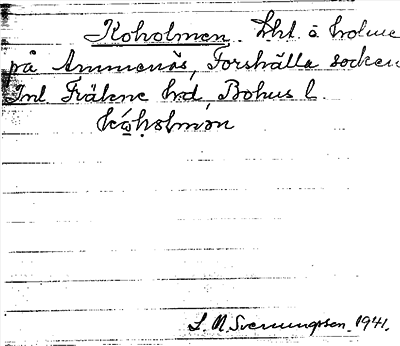 Koholmen. Lht å holme
på Ammenäs, Forshälla socken
Inl Fräkne hd, Bohus l.
kóholmən
S. N. Svenungsson. 1941.